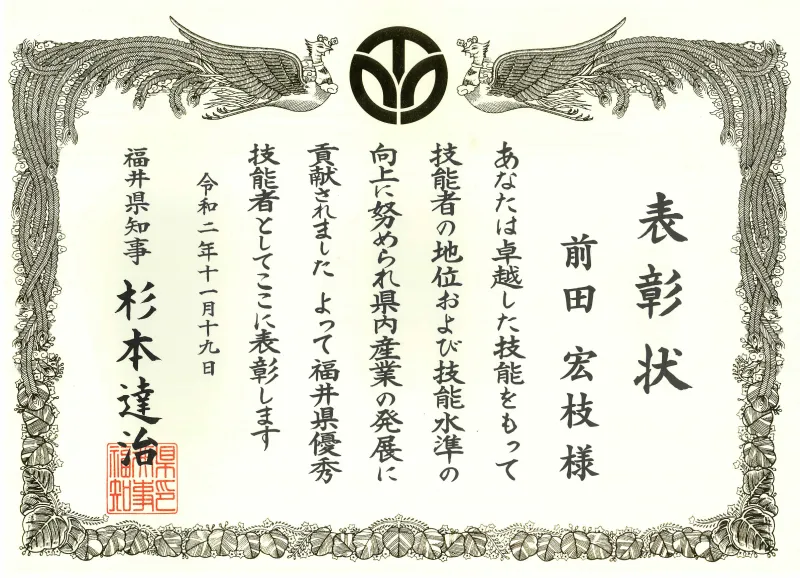 表彰状
前田 宏枝 様
あなたは卓越した技能をもって
技能者の地位および技能水準の
向上に努められ県内産業の発展に
貢献されました よって福井県優秀
技能者としてここに表彰します
令和二年十一月十九日
福井県知事 杉本達治
福井県知事印